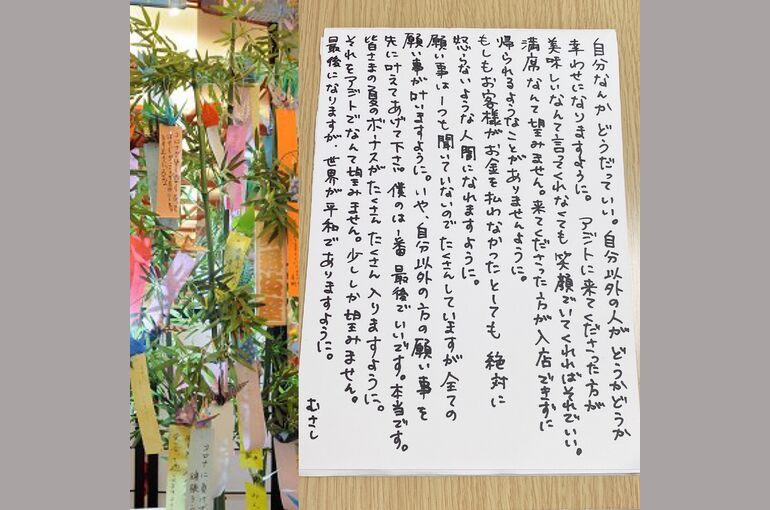 自分なんか どうだっていい。自分以外の人が どうかどうか
幸わせになりますように。 アジトに来てくださった方が
美味しいなんて言ってくれなくても笑顔でいてくれればそれでいい。
満席なんて望みません。来てくださった方が入店できずに
帰られるようなことがありませんように。
もしもお客様がお金を払わなかったとしても 絶対に
怒らないような人間になれますように。
願い事は一つも聞いていないので たくさんしていますが全ての
願い事が叶いますように。いや、自分以外の方の願い事を
先に叶えてあげて下さい。僕のは一番 最後でいいです。本当です。
皆さまの夏のボーナスがたくさん たくさん 入りますように。
それをアジトでなんて望みません。少ししか望みません。
最後になりますが、世界が平和でありますように。
むさし
コロナに負けず
頑張ろう